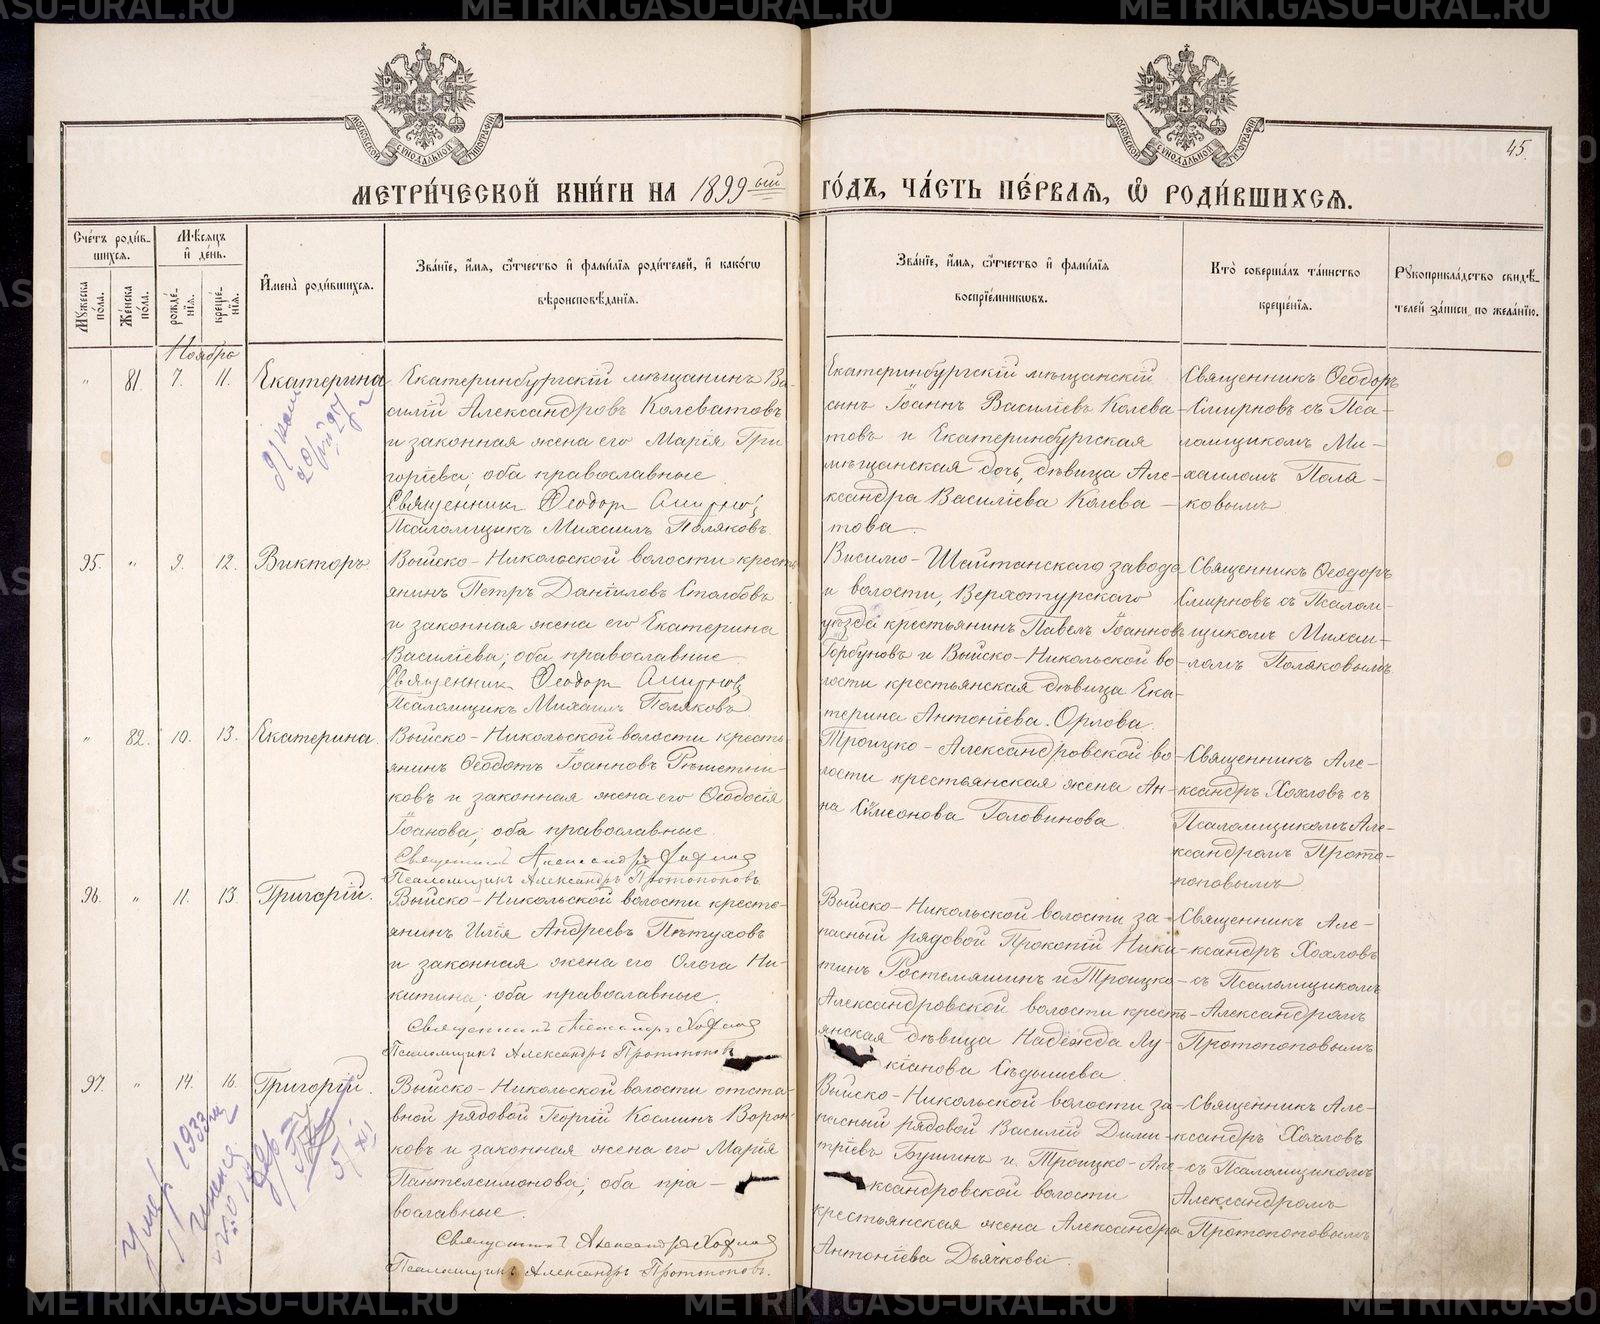 МОСКОВСКОЙ СѴНОДАЛЬНОЙ ТИПОГРАФІИ
МОСКОВСКОЙ СѴНОДАЛЬНОЙ ТИПОГРАФІИ
45.
МЕТРИ́ЧЕСКОЙ КНИ́ГИ НА 1899-ый
ГО́ДЪ, ЧА́СТЬ ПЕ́РВАЯ, Ѡ РОДИ́ВШИХСЯ.
Сче́тъ роди́в-
шихся.
Мѣ́сяцъ
и҆ де́нь.
Му́жеска по́ла.
Же́нска по́ла.
рожде́-
нїя.
креще́-
нїя.
И҆мена̀ роди́вшихся.
Зва́нїе, и҆́мя, ѻ҆́тчество и҆ фами́лїя роди́телей, и҆ како́гѡ
вѣроисповѣ́данїя.
Зва́нїе, и҆́мя, ѻ҆́тчество и҆ фами́лїя
воспрїе́мникѡвъ.
Кто̀ соверша́лъ та́инство
креще́нїя.
Рꙋкоприкла́дство свидѣ́-
телей за́писи по жела́нїю.
Ноябрь
" 81. 7. 11. Екатерина
Екатеринбургскій мѣщанинъ Ва-
силій Александровъ Колеватовъ
и законная жена его Марія Гри
горіева; оба православные.
Священникъ Ѳеодоръ Смирновъ
Псаломщикъ Михаилъ Поляковъ.
Екатеринбургскій мѣщанскій
сынъ Іоаннъ Василіевъ Колева
товъ и Екатеринбургская
мѣщанская дочь, дѣвица Але-
ксандра Василіева Колева
това.
Священникъ Ѳеодоръ
Смирновъ съ Пса-
ломщикомъ Ми-
хаиломъ Поля-
ковымъ
95. " 9. 12. Викторъ.
Выйско-Никольской волости кресть
янинъ Петръ Даніиловъ Столбовъ
и законная жена его Екатерина
Василіева; оба православные.
Священникъ Ѳеодоръ Смирновъ
Псаломщикъ Михаилъ Поляковъ
Висимо-Шайтанскаго завода
и волости, Верхотурскаго
уѣзда крестьянинъ Павелъ Іоанновъ
Горбуновъ и Выйско-Никольской во
лости крестьянская дѣвица Ека-
терина Антоніева Орлова.
Священникъ Ѳеодоръ
Смирновъ съ Псалом-
щикомъ Михаи-
ломъ Поляковымъ
" 82. 10. 13. Екатерина.
Выйско-Никольской волости кресть
янинъ Ѳеодотъ Іоанновъ Рѣшетни-
ковъ и законная жена его Ѳеодосія
Іоанова; оба православные.
Священникъ Александръ Хохловъ
Псаломщикъ Александръ Протопоповъ.
Троицко-Александровской во
лости крестьянская жена Ан-
на Сѵмеонова Головинова.
Священникъ Але-
ксандръ Хохловъ съ
Псаломщикомъ Але-
ксандромъ Прото-
поповымъ
96. " 11. 13. Григорій.
Выйско-Никольской волости кресть-
янинъ Илія Андреевъ Пѣтуховъ
и законная жена его Олга Ни-
китина; оба православные.
Священникъ Александръ Хохловъ
Псаломщикъ Александръ Протопоповъ
Выйско-Никольской волости за-
пасный рядовой Прокопій Ники-
тинъ и Троицко-
Александровской волости кресть-
янская дѣвица Надежда Лу-
кіанова Сѣдышева.
Священникъ Але-
ксандръ Хохловъ
съ Псаломщикомъ
Александромъ
Протопоповымъ
97. " 14. 16. Григорій.
Выйско-Никольской волости отста-
вной рядовой Георгій Косминъ Ворон
ковъ и законная жена его Марія
Пантелеимонова; оба пра-
вославные.
Священникъ Александръ Хохловъ
Псаломщикъ Александръ Протопоповъ.
Выйско-Никольской волости за-
пасный рядовой Василій Дими-
тріевъ Бушинъ и Троицко-Але-
ксандровской волости
крестьянская жена Александра
Антоніева Дьячкова.
Священникъ Але-
ксандръ Хохловъ
съ Псаломщикомъ
Александромъ
Протопоповымъ
Умер 1933
METRIKI.GASO-URAL.RU